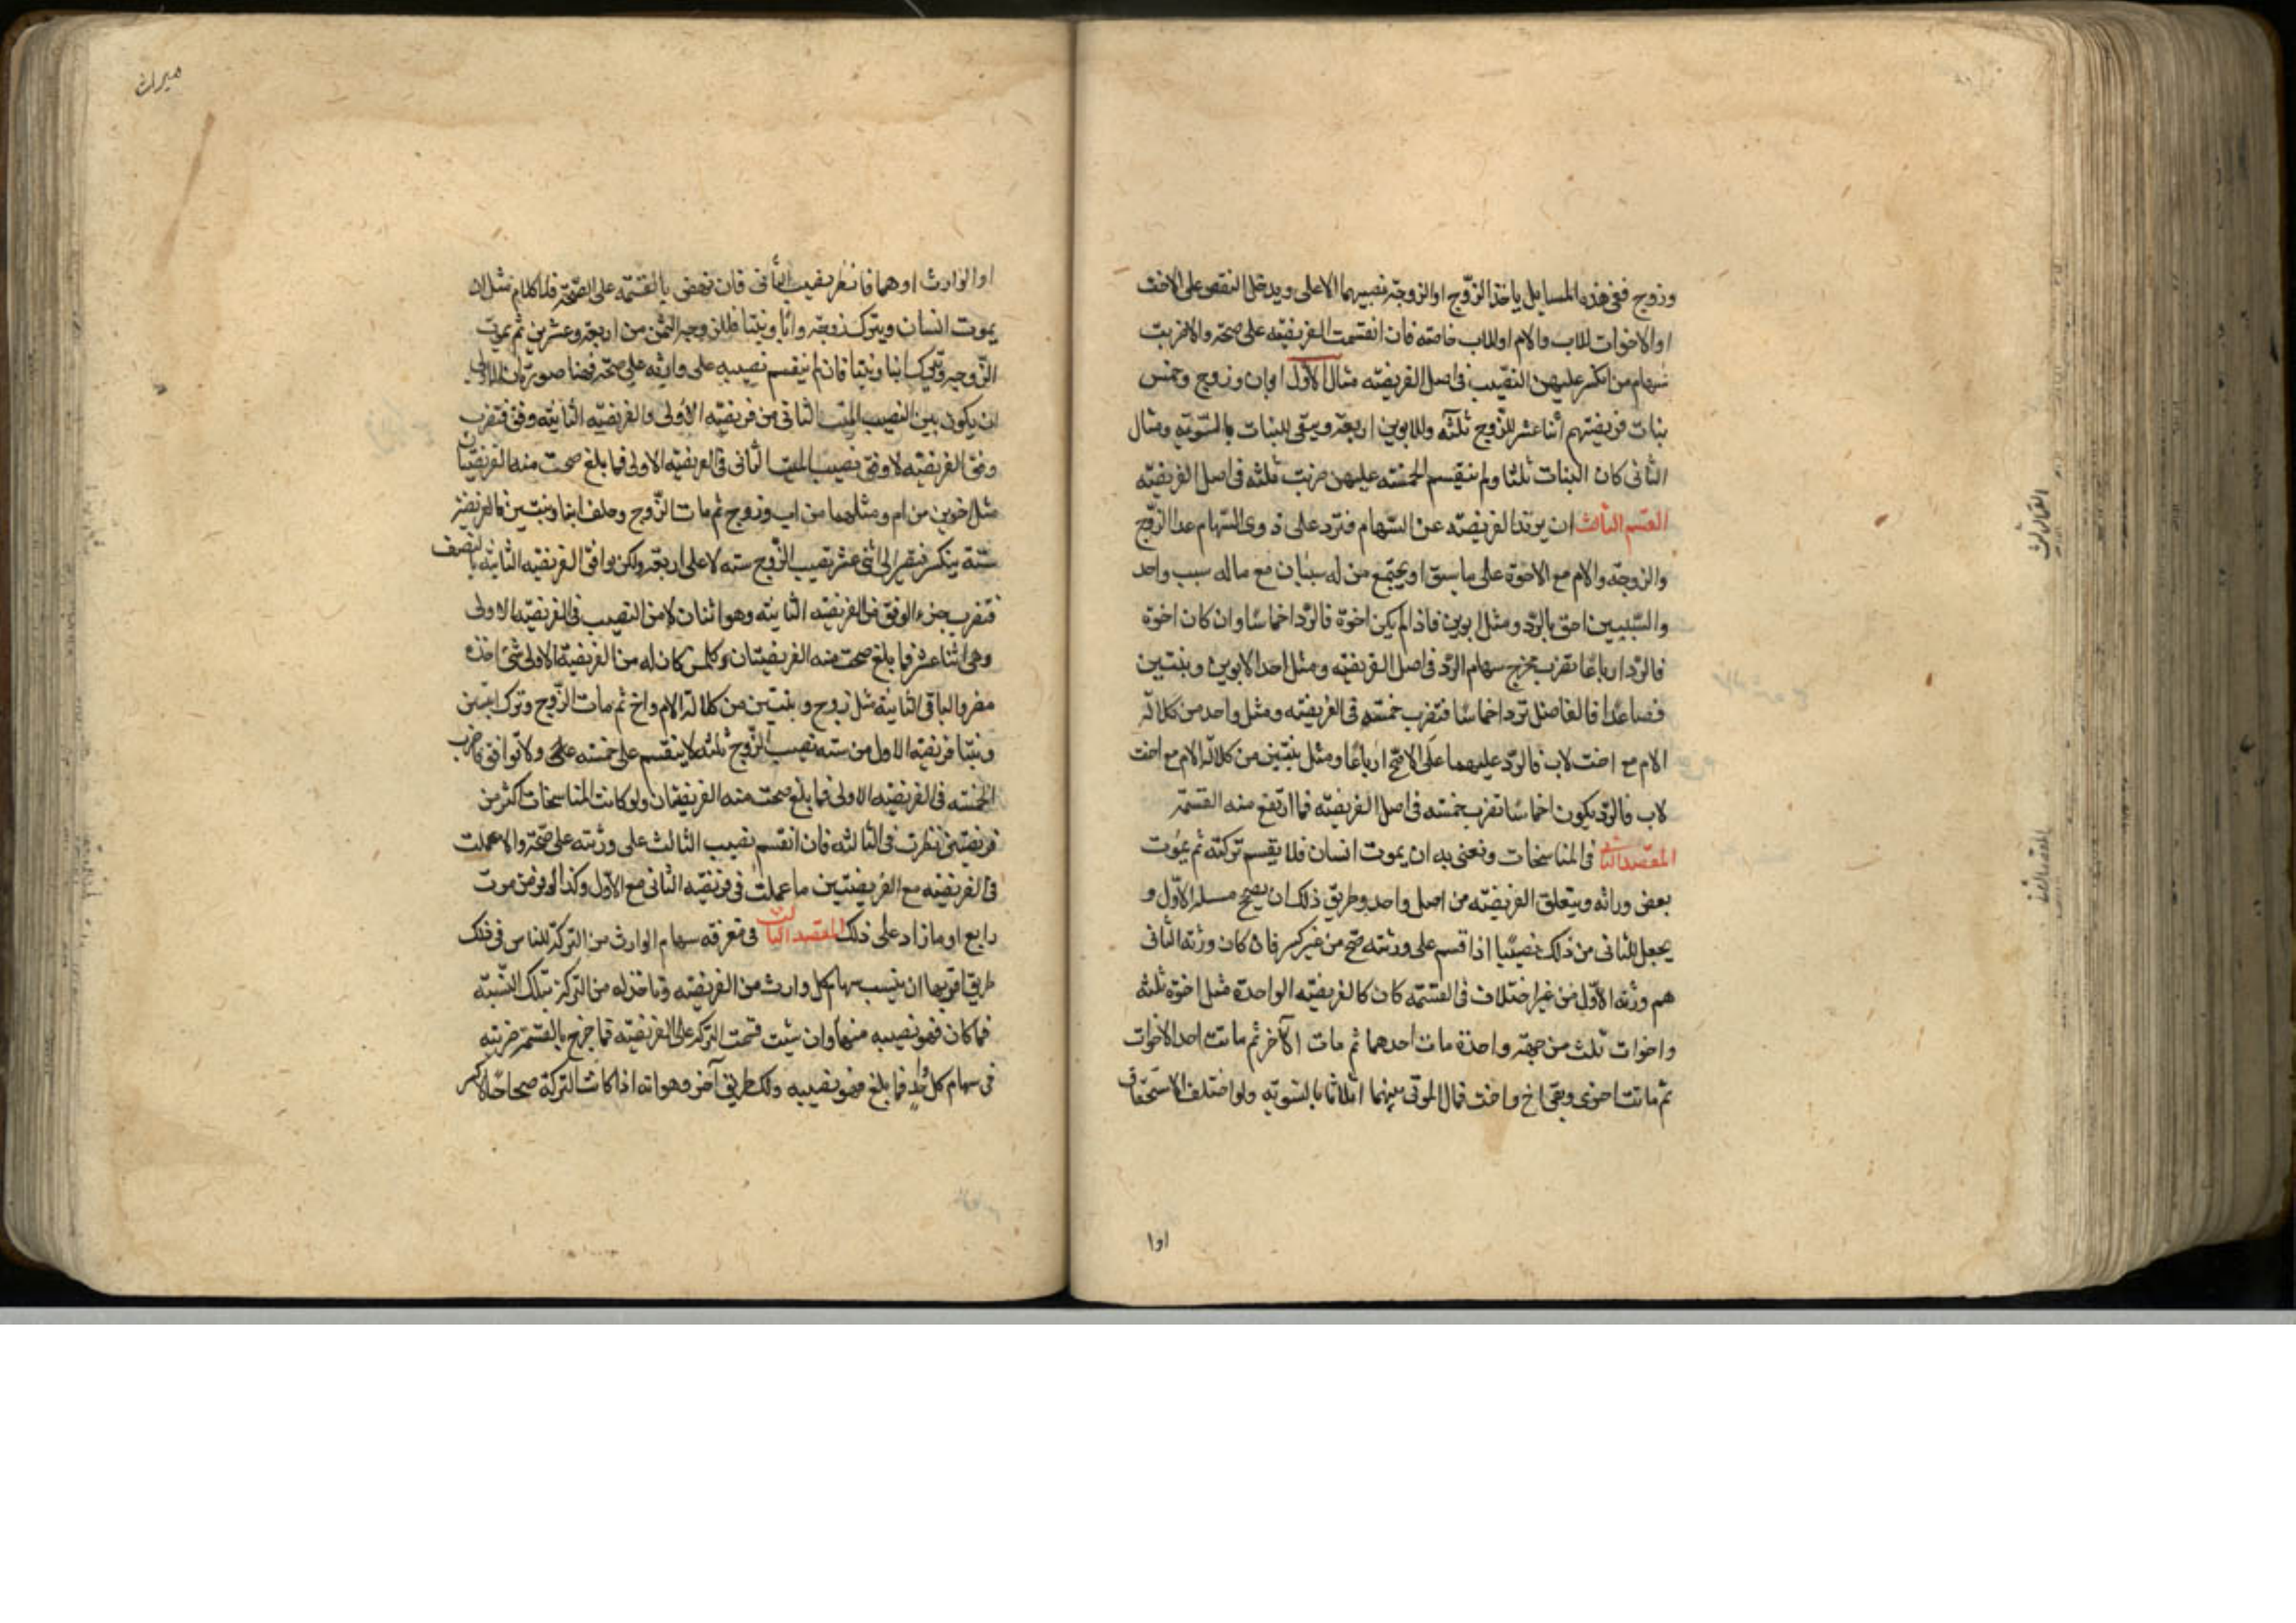 وزوج ففى هذه المسايل ياخذ الزّوج او الزوجة نصيبهما الاعلى ويدخل النقص على الاخت
او الاخوات للاب والام او للاب خاصه فان انقسمت الفريضه على صحة والا ضربت
سهام من انكسر عليهن النصيب فى اصل الفريضه مثال الاول ابوان وزوج وخمس
بنات فريضتهم اثنا عشر للزّوج ثلثه وللابوين اربعة ويبقى للبنات بالسّويّه ومثال
الثانى كان البنات ثلثا ولم ينقسم الخمسه عليهن ضربت ثلثه فى اصل الفريضه
القسم الثالث ان يزيد الفريضه عن السّهام فترد على ذوى السّهام عدا الزّوج
والزوجة والام مع الاخوة على ما سبق او يجتمع من له سببان مع ما له سبب واحد
والسّببين احق بالرّد ومثل ابوين فاذا لم يكن اخوة فالرّد اخماسًا وان كان اخوة
فالرّد ارباعًا تضرب مخرج سهام الرّد فى اصل الفريضه ومثل احد الابوين وبنتين
فصاعدًا فالفاضل ترد اخماسًا فتضرب خمسه فى الفريضه ومثل واحد من كلالة
الام مع اخت لاب فالرّد عليهما على الاصّح ارباعًا ومثل بنتين من كلالة الام مع اخت
لاب فالرّد يكون اخماسًا تضرب خمسه فى اصل الفريضه فما ارتفع منه القسمة
المقصد الثانى فى المناسخات ونعنى به ان يموت انسان فلا يقسم تركته ثم يموت
بعض وراثه ويتعلق الفريضه من اصل واحد وطريق ذلك ان يصحح مسلة الاوّل و
يجعل للثانى من ذلك نصيبًا اذا قسم على ورثته صح من غير كسر فان كان ورثة الثانى
هم ورثة الاوّل من غير اختلاف فى القسمه كان كالفريضه الواحدة مثل اخوة ثلثه
واخوات ثلث من جهة واحدة مات احدهما ثم مات الآخر ثم ماتت احد الاخوات
ثم ماتت اخرى وبقى اخ واخت فمال الموتى بينهما اثلاثا بالسّويّه ولو اختلف الاستحقاق
اوا
القسم الثالث
المقصد الثانى
ميراث
او الوارث او هما فانظر نصيب الثانى فان نهض بالقسمه على الصّحة فلا كلام مثل ان
يموت انسان ويترك زوجة وابًا وبنتا فللزوجة الثمن من اربعة وعشرين ثم يموت
الزّوجة وتترك ابنا وبنتا فان لم ينقسم نصيبه على وارثه على صحة فهنا صورتان الاولى
ان يكون بين النصيب الميت الثانى من فريضه الاولى والفريضه الثانيه وفق فتضرب
وفق الفريضه لا وفق نصيب الميت الثانى فى الفريضه الاولى فما بلغ صحت منه الفريضتان
مثل اخوين من ام ومثلهما من اب وزوج ثم مات الزّوج وخلف ابنا وبنتين فالفريضة
ستّة ينكسر فتصير الى اثنى عشر نصيب الزّوج سته لا على اربعة ولكن يوافق الفريضه الثانيه بالنصف
فتضرب جزء الوفق من الفريضه الثانيه وهو اثنان لا من النصيب فى الفريضه الاولى
وهى اثنا عشر فما بلغ صحت منه الفريضتان وكل من كان له من الفريضة الاولى شئ اخذه
مضروبا الثانية مثل زوج واثنين من كلالة الام واخ ثم مات الزّوج وترك ابنين
وبنتا فريضه الاول من سته نصيب الزّوج ثلثه لا ينقسم على خمسه ولا توافق فاضرب
الخمسه فى الفريضه الاولى فما بلغ صحت منه الفريضتان ولو كانت المناسخات اكثر من
فريضتين نظرت فى الثالثه فان انقسم نصيب الثالث على ورثته على صّحة والا عملت
فى الفريضه مع الفريضتين ما عملت فى فريضه الثانى مع الاوّل وكذا لو فرض موت
رابع او ما زاد على ذلك المقصد الثالث فى معرفة سهام الوارث من التركة للناس فى ذلك
طريق اقربها ان ينسب سهام كل وارث من الفريضه وتاخذ له من التركة بتلك النّسبه
فما كان فهو نصيبه منها وان شئت قسمت التركة على الفريضه فما خرج بالقسمة ضربته
فى سهام كل واحد فما بلغ فهو نصيبه ولك طريق آخر وهو انه اذا كانت التركة صحاحًا لا كسر